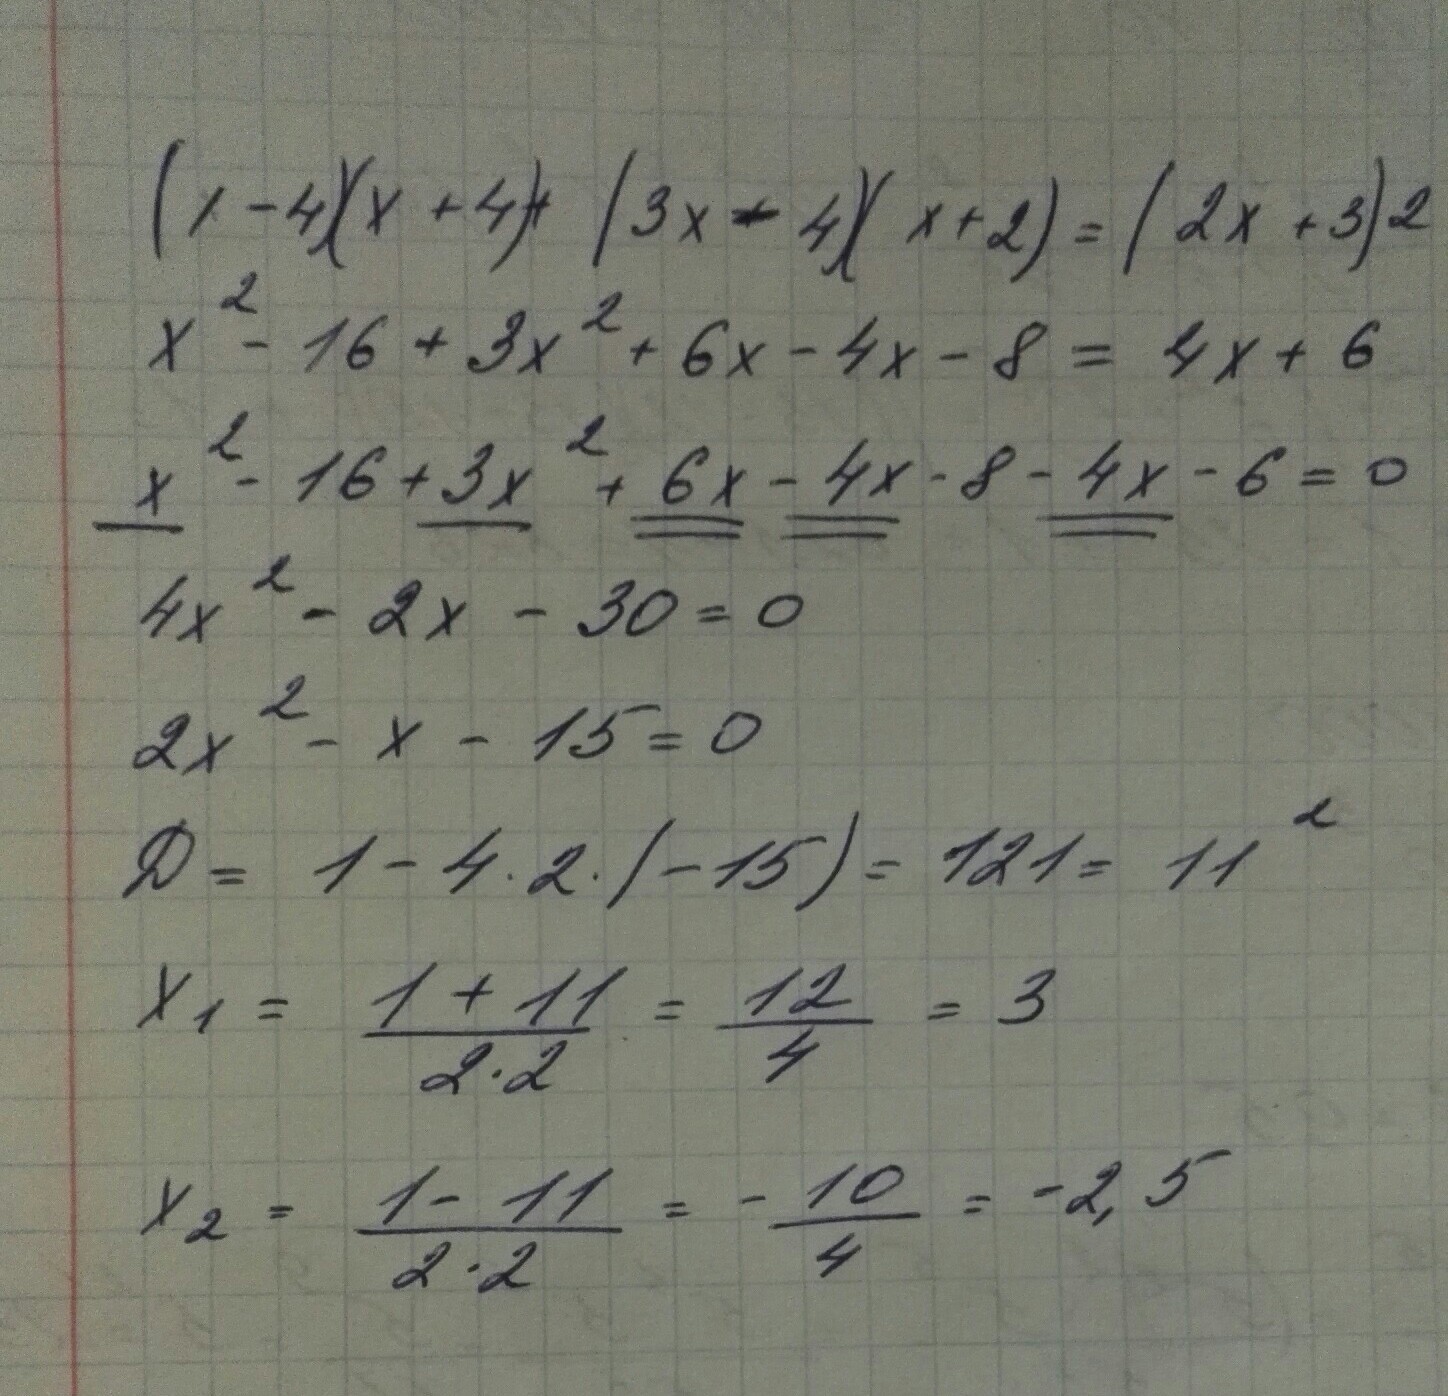 (x-4)(x+4)+(3x-4)(x+2)=(2x+3)2
x²-16+3x²+6x-4x-8=4x+6
x²-16+3x²+6x-4x-8-4x-6=0
4x²-2x-30=0
2x²-x-15=0
D=1-4·2·(-15)=121=11²
x₁=(1+11)/(2·2)=12/4=3
x₂=(1-11)/(2·2)=-10/4=-2,5